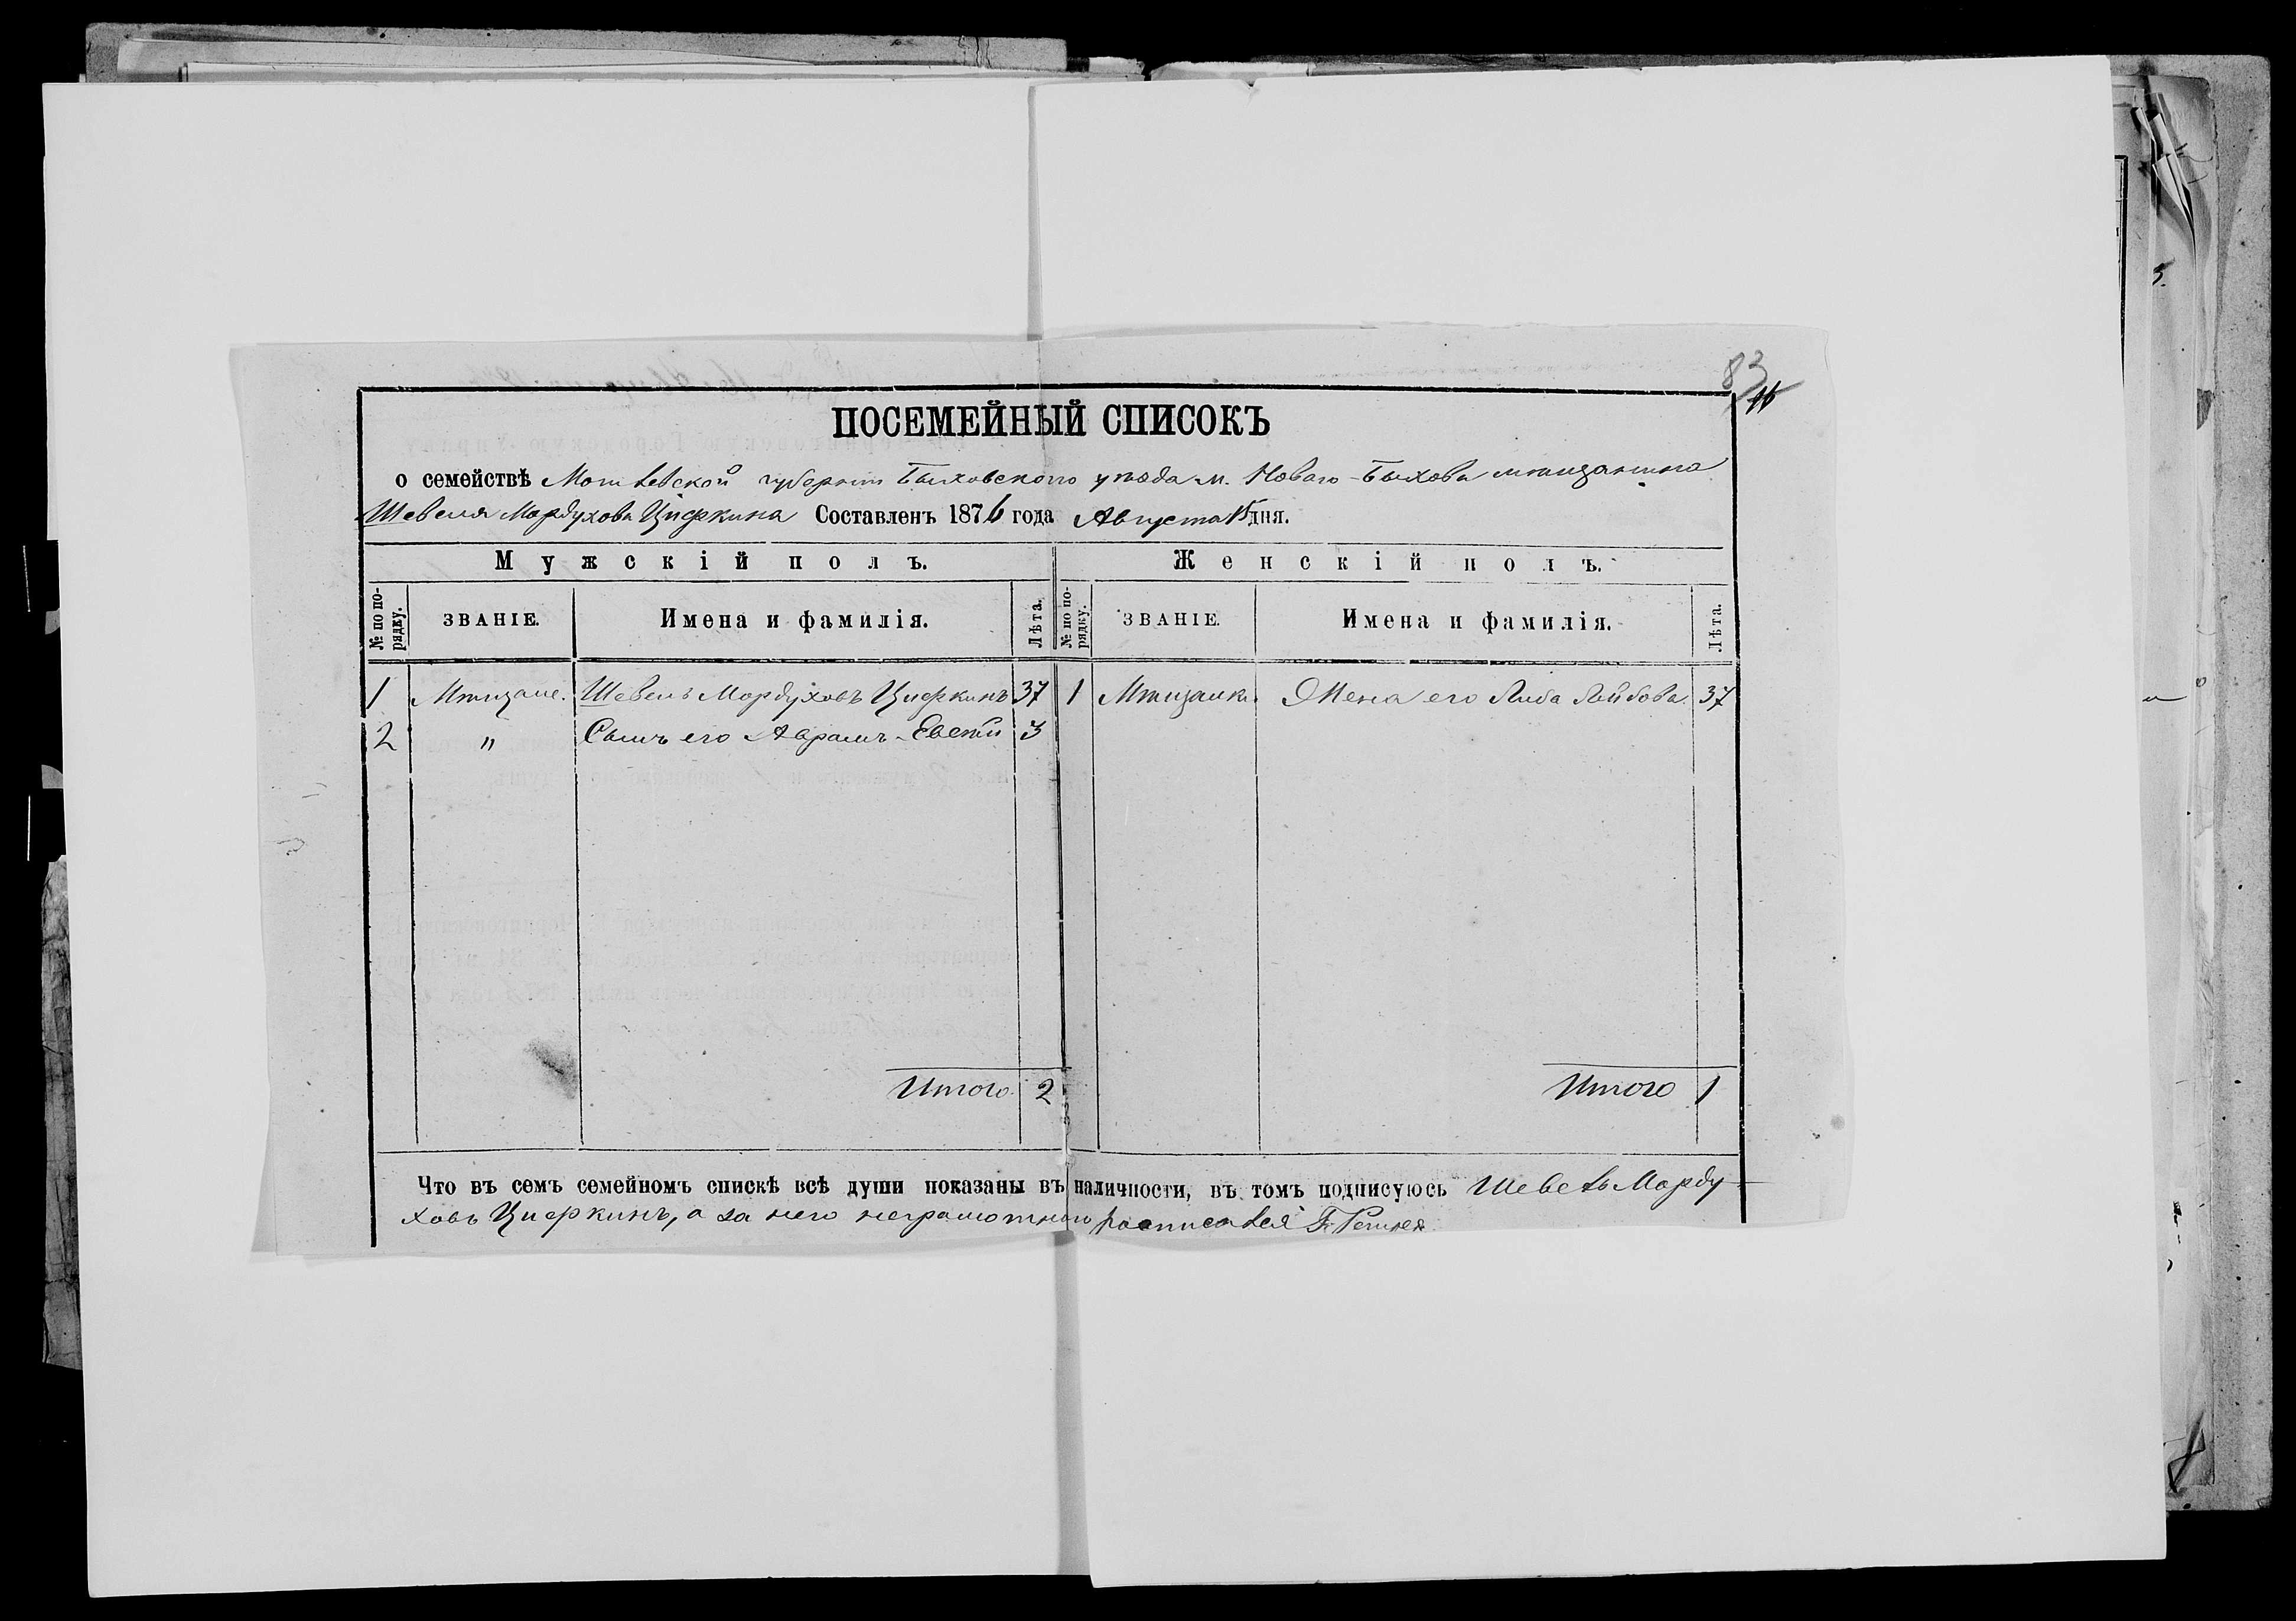 83
16
ПОСЕМЕЙНЫЙ СПИСОКЪ
о семействѣ Могилевской губерніи Быховскаго уѣзда м. Новаго-Быхова мѣщанина
Шевеля Мордухова Цифркина Составленъ 1876 года Августа 15 дня.
Мужскій полъ. Женскій полъ.
№ по порядку. ЗВАНІЕ. Имена и фамилія. Лѣта. № по порядку. ЗВАНІЕ. Имена и фамилія. Лѣта.
1 Мѣщане. Шевель Мордуховъ Цифркинъ 37 1 Мѣщанка. Жена его Либа Лейбова 37
2 " Сынъ его Абрамъ- 3
Итого 2 Итого 1
Что въ семъ семейномъ спискѣ всѣ души показаны въ наличности, въ томъ подписуюсь Шевель Морду-
ховъ Цифркинъ, а за него неграмотнаго росписался